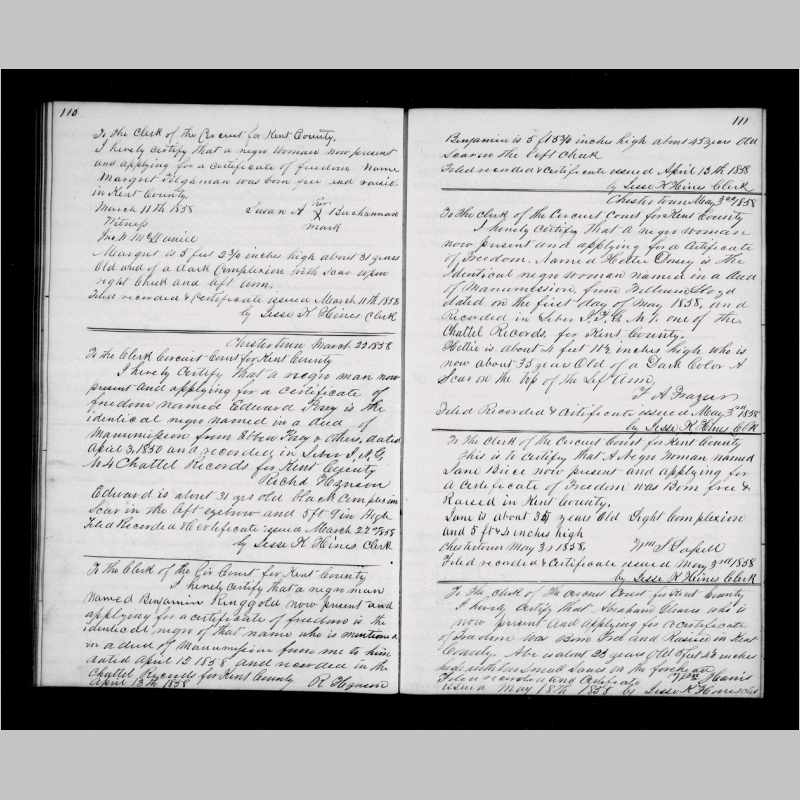 110
To the Clerk of the Circuit for Kent County.
I hereby certify that a negro woman now present
and applying for a certificate of freedom name
Margret was born free and raised
in Kent County
March 11th 1858 Susan A her X Buchannan
Witness mark
Jno. W. McDaniel
Margret is 5 feet 2¾ inches high about 31 years
Old and of a dark Complexion with Scar upon
right Cheek and left arm.
Filed recorded & Certificate issued March 11th 1858
by Jesse K Hines Clerk
Chestertown March 22 1858
To the Clerk Circuit Court for Kent County
I hereby Certify that a negro man now
present and applying for a Certificate of
freedom named Edward is the
identical negro named in a deed of
Manumission from & others, dated
April 3, 1850 and recorded in Liber J.N.G.
No 4 Chattel Records for Kent County
Richd Hynson
Edward is about 31 yrs old black Complexion
Scar in the left eyebrow and 5 ft 9 in High
Filed Recorded & Certificate issued March 22nd 1858
by Jesse K Hines Clerk
To the Clerk of the Cir Court for Kent County
I hereby certify that a negro man
named Benjamin Ringgold now present and
applying for a certificate of freedom is the
identical negro of that name who is mentioned
in a deed of Manumission from me to him
dated April 12 1858 and recorded in the
Chattel Records for Kent County R Hynson
April 13th 1858
111
Benjamin is 5 ft 5¾ inches high about 45 years Old
Scar on the left Cheek
Filed recorded & Certificate issued April 13th 1858
by Jesse K Hines Clerk
Chestertown May 3rd 1858
To the Clerk of the Circuit Court for Kent County
I hereby Certify that a negro woman
now present and applying for a Certificate
of Freedom. Named Hettie is the
Identical negro woman named in a deed
of Manumission, from William Lloyd
dated on the first day of May 1858, and
Recorded in Liber No 1. one of the
Chattel Records, for Kent County.
Hettie is about 4 feet 11½ inches high who is
now about 35 year Old of a Dark Color A
Scar on the top of the Left arm,
T. A Frazier
Filed Recorded & Certificate issued May 3rd 1858
by Jesse K. Hines Clk
To the Clerk of the Circuit Court for Kent County
This is to Certify that A Negro Woman named
Jane now present and applying for
a Certificate of Freedom was Born free &
Raised in Kent County.
Jane is about 35 years Old Light Complexion
and 5 ft 4 inches high
Chestertown May 3d 1858. Wm S Lassell
Filed recorded & Certificate issued May 3rd 1858
by Jesse K Hines Clerk
To the Clerk of the Circuit Court for Kent County
I hereby Certify that Abraham who is
now present and applying for a Certificate
of Freedom was Born Free and Raised in Kent
County. Abe is about 23 years Old 5 feet inches
high with two Small Scars on the forehead
Filed recorded and Certificate Wm Harris
issued May 18th 1858 by Jesse K Hines Clk